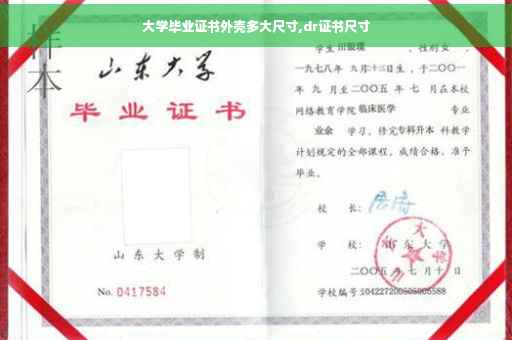 大学毕业证书外壳多大尺寸,dr证书尺寸
样本
山东大学
毕业证书
山东大学制
No. 0417584
学生 田银璞 ,性别 女 ,
一九七八年 九月十三日生,于二〇〇一
年 九 月至二〇〇五 年 七 月在本校
网络教育学院 临床医学 专业
业余 学习,修完 专科升本 科教学
计划规定的全部课程,成绩合格,准予
毕业。
校 长:
学 校: 山东大学
二〇〇五 年 七 月 十 日
学校编号:104227200505005588